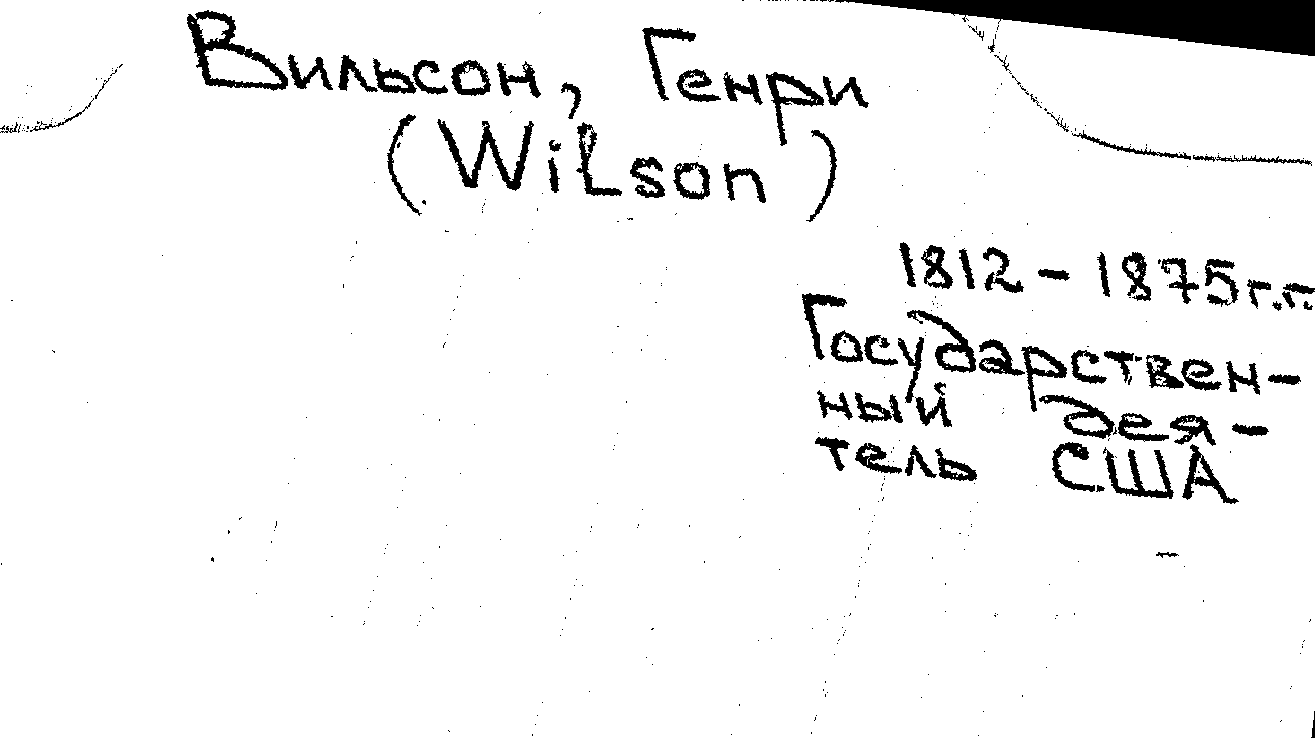 Вильсон, Генри
(Wilson)
1812 - 1875 г.г.
Государствен-
ный дея-
тель США